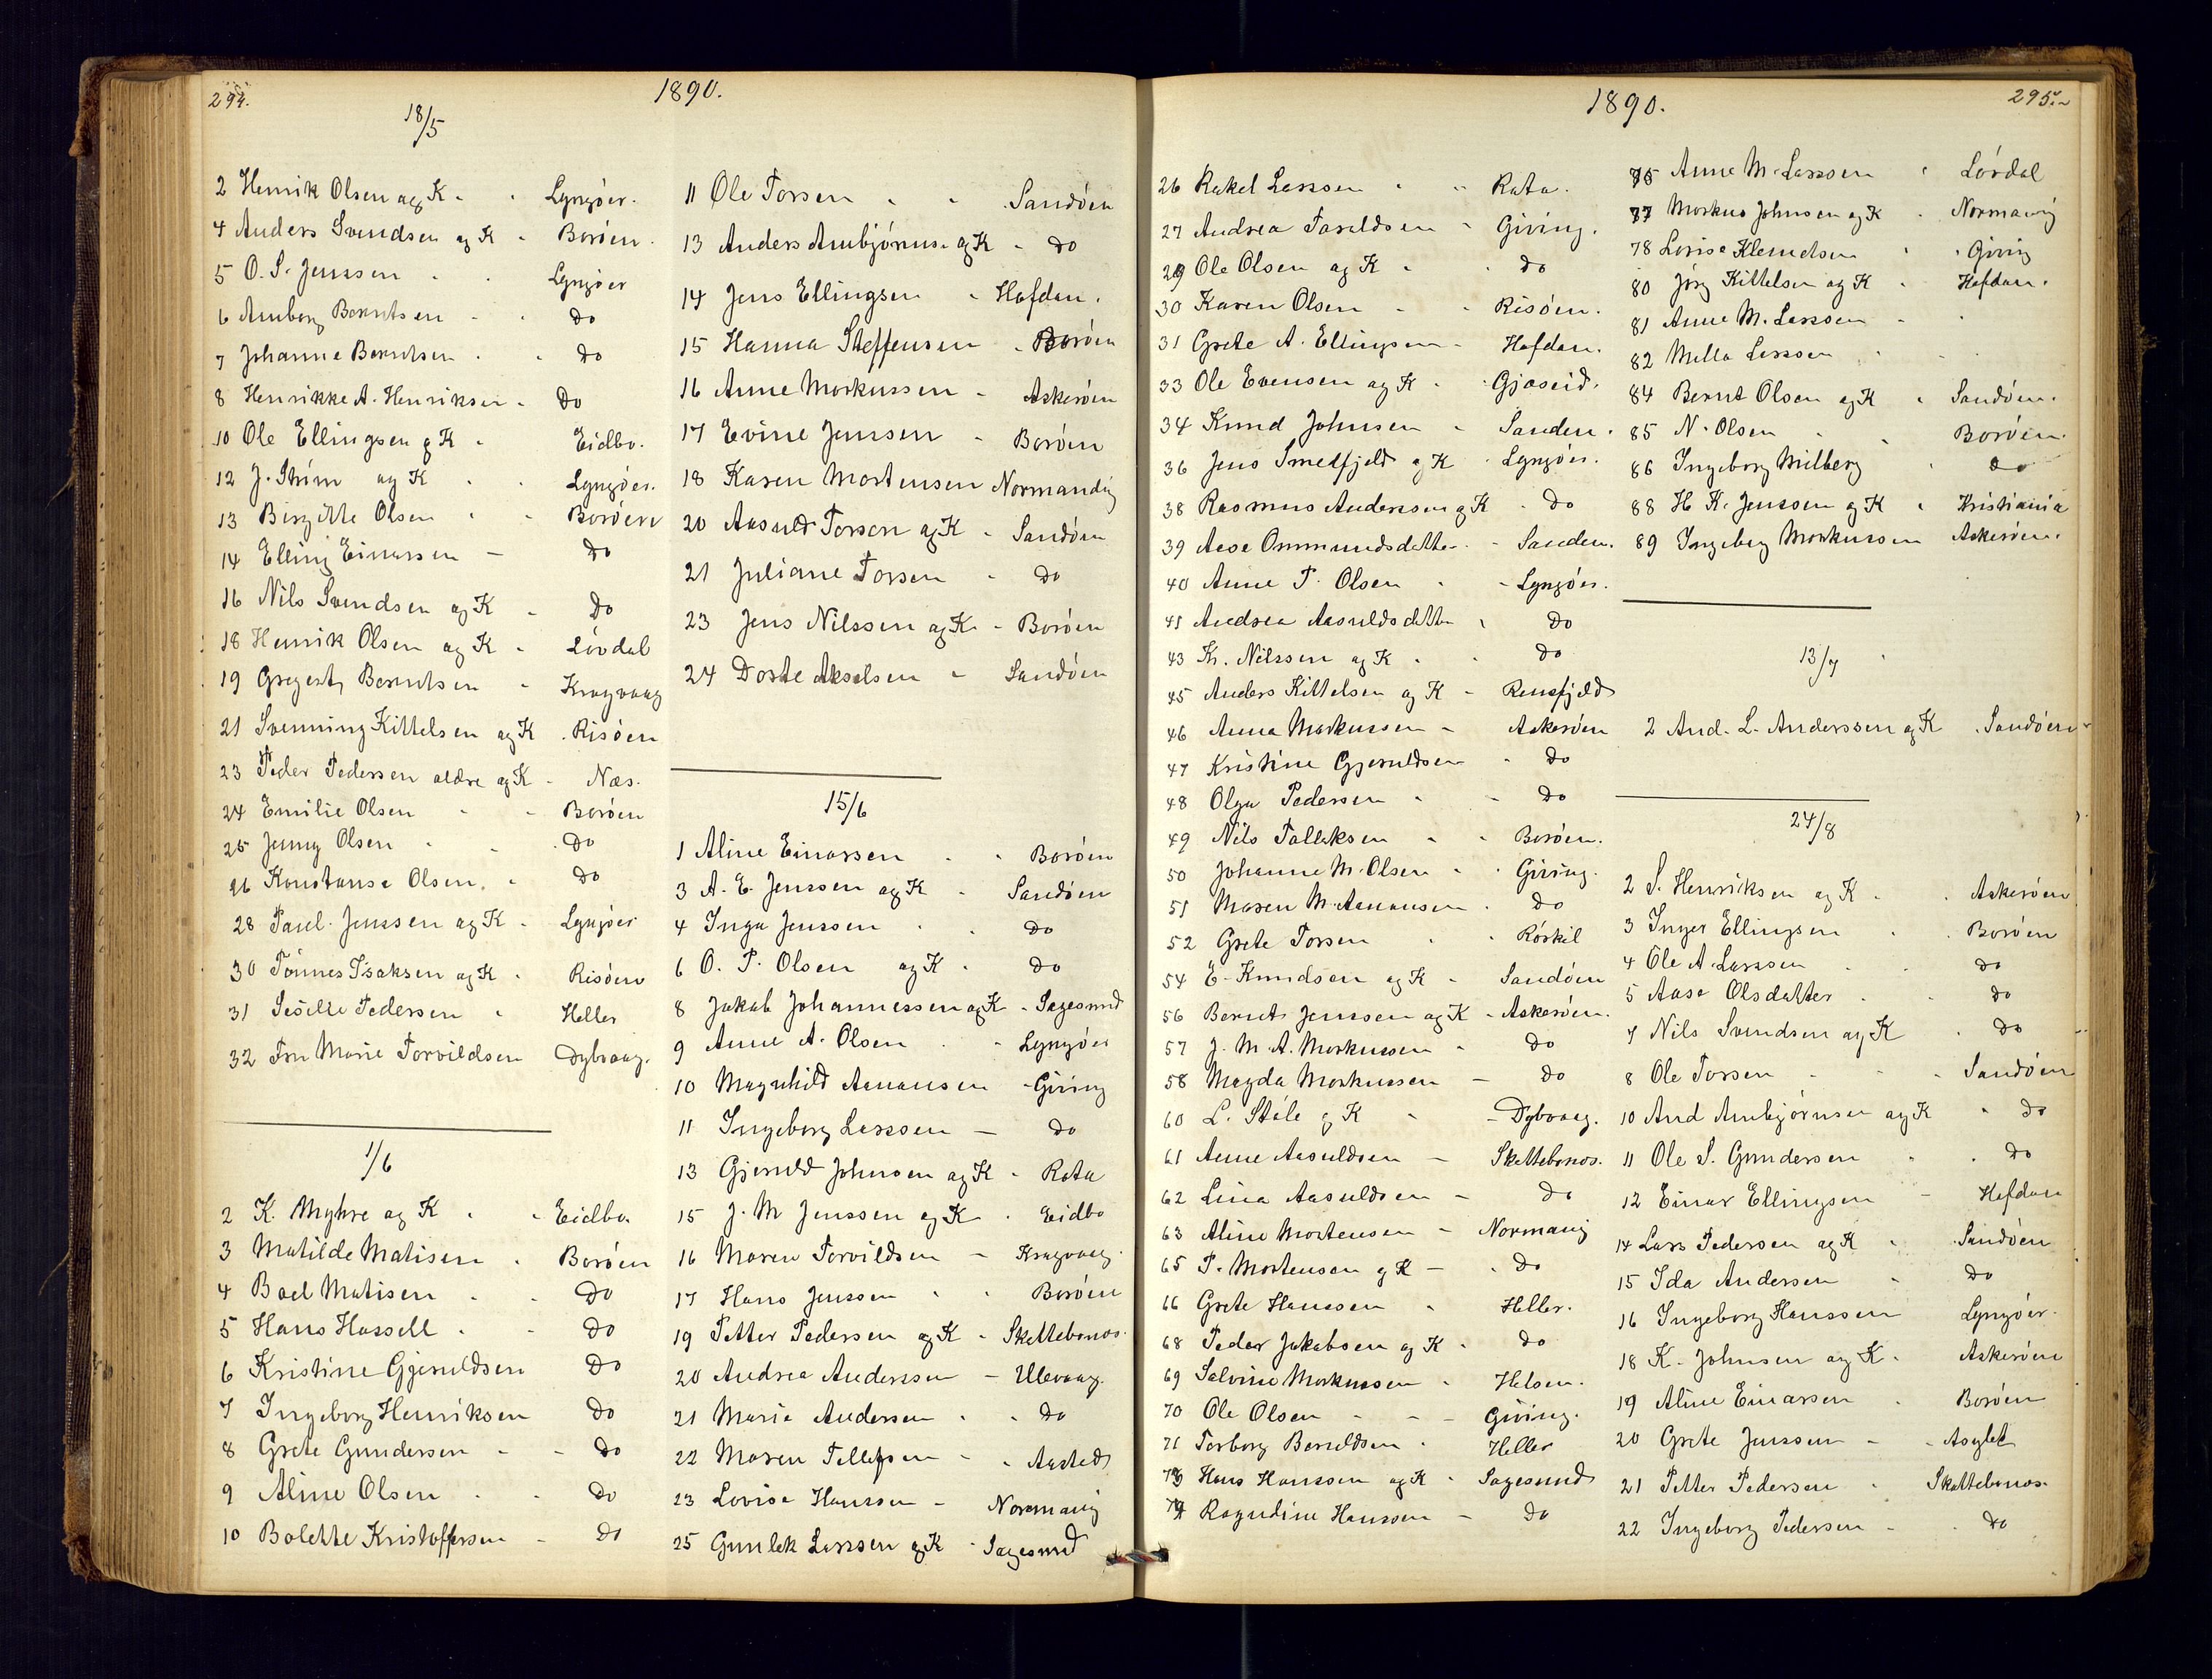 294.
1890.
18/5
2 Henrik Olsen og K - - Lyngöer.
4 Anders Svendsen og K - Boröen.
5 O. S. Jenssen - - Lyngöer
6 Amborg Berntsen - - Do
7 Johanne Berntsen - - Do
8 Henrikke A. Henriksen - Do
10 Ole Ellingsen og K - Eidbo.
12 J. Ström og K - - Lyngöer.
13 Birgitte Olsen - - Boröen
14 Elling Einarssen - Do
16 Nils Svendsen og K - Do
18 Henrik Olsen og K - Lövdal
19 Berntsen - Kragvaag
21 Svenning Kittelsen og K . Risöen
23 Peder Pedersen ældre og K - Næs.
24 Emilie Olsen - - Boröen
25 Jenny Olsen - - Do
26 Konstanse Olsen. - Do
28 Paul. Jenssen og K - Lyngöer
30 Tönnes Isaksen og K - Risöen
31 Sesilie Pedersen - Heller
32 Fru Marie Torvildsen Dybvaag.
1/6
2 K. Myhre og K - - Eidbo.
3 Matilde Matisen - Boröen
4 Boel Matisen - - Do
5 Hans Hassell - - Do
6 Kristine Gjeruldsen Do
7 Ingeborg Henriksen Do
8 Grete Gundersen - - Do
9 Aline Olsen - - Do
10 Bolette Kristoffersen - Do
11 Ole Torsen - - Sandöen
13 Anders Ambjörnsen og K - Do
14 Jens Ellingsen - Hofdan.
15 Hanna Steffensen - Boröen
16 Anne Markussen - Askeröen
17 Evine Jenssen - Boröen
18 Karen Mortensen Normandvig
20 Aasuld Torsen og K - Sandöen
21 Juliane Torsen - Do
23 Jens Nilssen og K - Boröen
24 Dorte Akselsen - Sandöen
15/6
1 Aline Einarssen - - Boröen
3 A. E. Jenssen og K - Sandöen
4 Inga Jenssen - - Do
6 O. P. Olsen og K - Do
8 Jakob Johannessen og K - Sagesund
9 Anne A. Olsen - - Lyngöer
10 Magnhild Aanonsen - Giving
11 Ingeborg Larssen - Do
13 Gjeruld Johnsen og K - Rota
15 J. M Jenssen og K - Eidbo
16 Maren Torvildsen - Kragvaag.
17 Hans Jenssen - - Boröen
19 Petter Pedersen og K - Skottebonos.
20 Andrea Anderssen - Ulevaag.
21 Maria Andersen - - Do
22 Maren Tellefsen - - Aasted
23 Lovise Hanssen - Normanvig
25 Gunlek Larssen og K - Sagesund
1890.
295.
26 Rakel Larssen - - Rota.
27 Andrea Taraldsen - Giving.
29 Ole Olsen og K - - Do
30 Karen Olsen - - Risöen.
31 Grete A. Ellingsen - Hofdan.
33 Ole Evensen og K - Gjæseid.
34 Knud Johnsen - Sanden.
36 Jens Smedfjeld og K - Lyngöer.
38 Rasmus Anderssen og K - Do
39 Aase Ommundsdatter - Sanden.
40 Anne P. Olsen - - Lyngöer.
41 Andrea Aasuldsdatter - Do
43 Kr. Nilssen og K - - Do
45 Anders Kittelsen og K - Rensfjeld
46 Anna Markussen - Askeröen
47 Kristine Gjeruldsen - Do
48 Olga Pedersen - - Do
49 Nils Tallaksen - - Boröen.
50 Johanne M. Olsen - - Giving.
51 Maren M. Aanonsen - Do
52 Grete Torsen - - Röskil
54 E. Knudsen og K - Sandöen
56 Bernt Jenssen og K - Askeröen.
57 J. M. A. Markussen - Do
58 Magda Markussen - Do
60 L. Stöle og K - - Dybvaag.
61 Anne Aasuldsen - Skottebonos.
62 Lina Aasuldsen - Do
63 Aline Mortensen - Normanvig
65 P. Mortensen og K - - Do
66 Grete Hanssen - Heller.
68 Peder Jakobsen og K - Do
69 Salvine Markussen - Holsen.
70 Ole Olsen - - - Giving.
71 Torborg Beruldsen - Heller
73 Hans Hanssen og K - Sagesund
74 Ragndine Hanssen - Do
75 Anne M. Larssen - Lövdal
77 Markus Johnsen og K - Normanvig
78 Lovise Klemetsen - - Giving
80 Jörg Kittelsen og K - Hofdan.
81 Anne M. Larssen - -
82 Milla Larssen - -
84 Bernt Olsen og K - Sandöen.
85 N. Olsen - - Boröen.
86 Ingeborg Milberg - Do
88 H. K. Jenssen og K - Kristiania
89 Ingeborg Markussen Askeröen.
13/7
2 And. L. Anderssen og K . Sandöen
24/8
2 S. Henriksen og K - - Askeröen
3 Inger Ellingsen - - Boröen
4 Ole A. Larssen - - Do
5 Aase Olsdatter - - Do
7 Nils Svendsen og K - Do
8 Ole Torsen - - - Sandöen
10 And Ambjörnsen og K - Do
11 Ole S. Gundersen - - Do
12 Einar Ellingsen - Hofdan
14 Lars Pedersen og K - Sandöen
15 Ida Andersen - Do
16 Ingeborg Hanssen Lyngöer.
18 K. Johnsen og K. - Askeröen
19 Aline Einarssen - Boröen
20 Grete Jenssen - - Asylet
21 Petter Pedersen - Skottebonos.
22 Ingeborg Pedersen - - Do